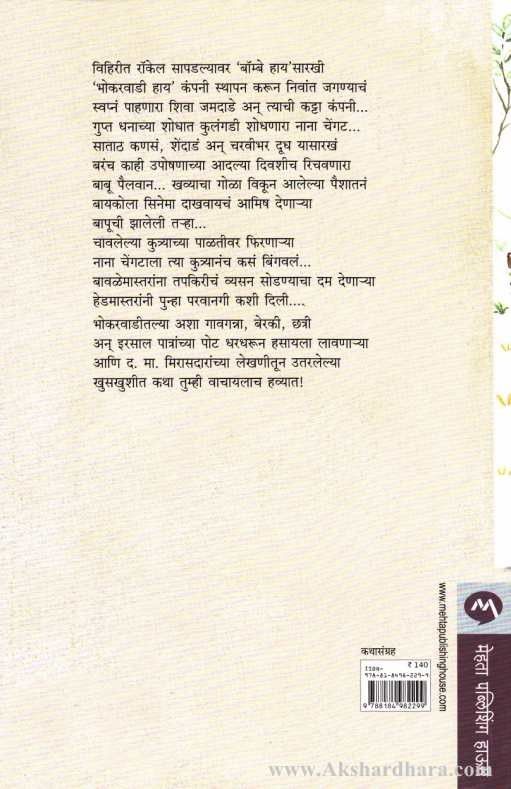 विहिरीत रॉकेल सापडल्यावर ‘बॉम्बे हाय’सारखी
‘भोकरवाडी हाय’ कंपनी स्थापन करून निवांत जगण्याचं
स्वप्नं पाहणारा शिवा जमदाडे अन् त्याची कट्टा कंपनी...
गुप्त धनाच्या शोधात कुलंगडी शोधणारा नाना चेंगट...
साताठ कणसं, शेंदाडं अन् चरवीभर दूध यासारखं
बरंच काही उपोषणाच्या आदल्या दिवशीच रिचवणारा
बाबू पैलवान... खव्याचा गोळा विकून आलेल्या पैशातनं
बायकोला सिनेमा दाखवायचं आमिष देणाऱ्या
बापूची झालेली तऱ्हा...
चावलेल्या कुत्र्याच्या पाळतीवर फिरणाऱ्या
नाना चेंगटाला त्या कुत्र्यानंच कसं बिंगवलं...
बावळेमास्तरांना तपकिरीचं व्यसन सोडण्याचा दम देणाऱ्या
हेडमास्तरांनी पुन्हा परवानगी कशी दिली....
भोकरवाडीतल्या अशा गावगन्ना, बेरकी, छत्री
अन् इरसाल पात्रांच्या पोट धरधरून हसायला लावणाऱ्या
आणि द. मा. मिरासदारांच्या लेखणीतून उतरलेल्या
खुसखुशीत कथा तुम्ही वाचायलाच हव्यात!
www.mehtapublishinghouse.com
मेहता पब्लिशिंग हाऊस
कथासंग्रह
₹ 140
ISBN-
978-81-8498-229-9
9 788184 982299
www.Akshardhara.com